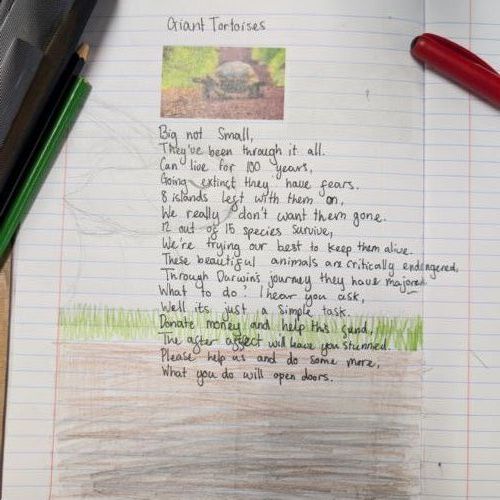 Giant Tortoises
Big not Small,
They've been through it all.
Can live for 100 years,
Going extinct they have fears.
8 islands left with them on,
We really don't want them gone.
12 out of 15 species survive,
We're trying our best to keep them alive.
These beautiful animals are critically endangered,
Through Darwin's journey they have majored.
What to do? I hear you ask,
Well its just a simple task.
Donate money and help this fund,
The after affect will leave you stunned.
Please help us and do some more,
What you do will open doors.